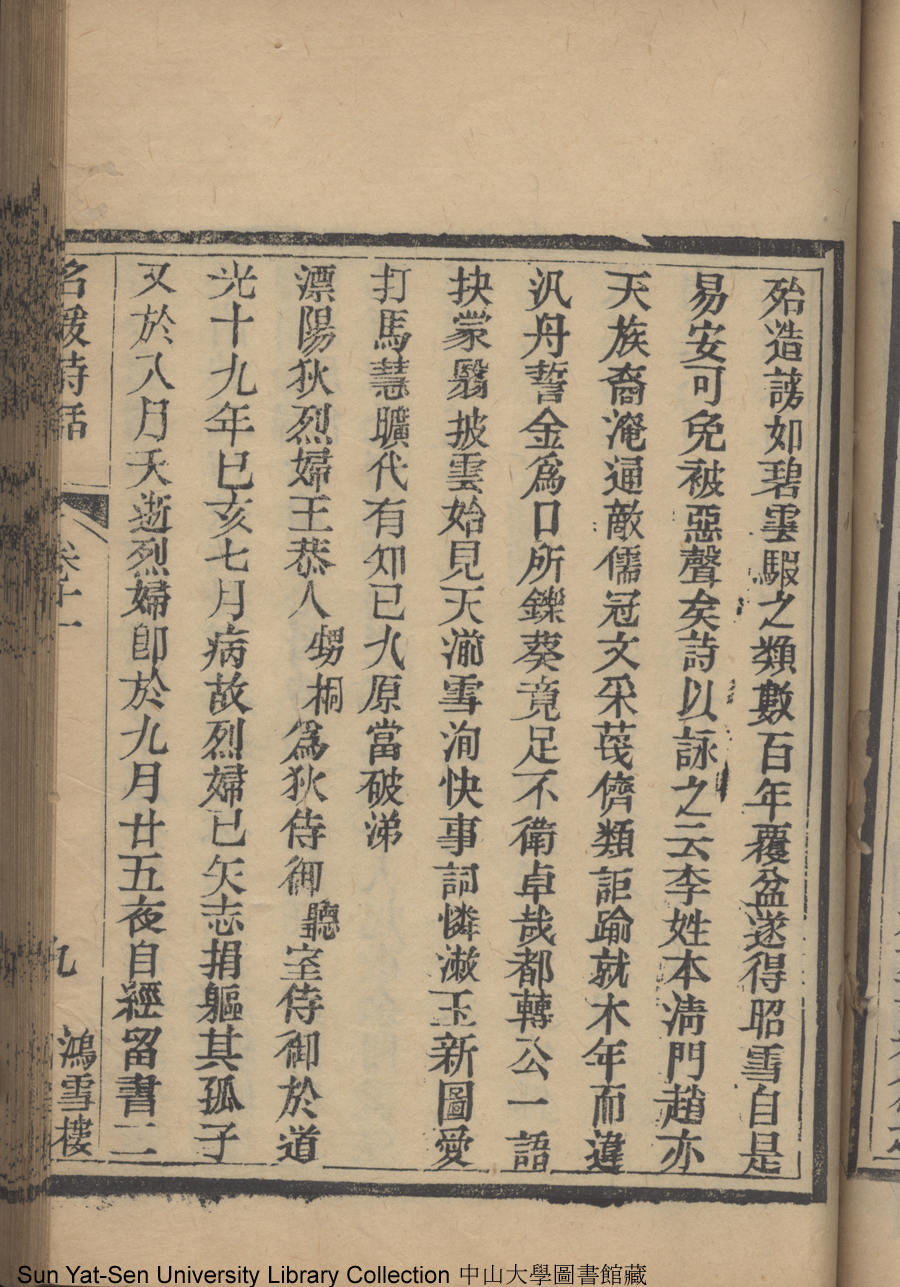 殆造謗如碧雲騢之類數百年覆盆遂得昭雪自是
易安可免被惡聲矣詩以詠之云李姓本清門趙亦
天族裔淹通敵儒冠文采莪儕類詎踰就木年而違
汎舟誓金為口所鑠葵竟足不衛卓哉都轉公一語
抉蒙翳披雲始見天湔雪洵快事詞憐漱玉新圖愛
打馬慧曠代有知已九原當破涕
溧陽狄烈婦王恭人甥桐為狄侍御聽室侍御於道
光十九年已亥七月病故烈婦已矢志捐軀其孤子
又於八月夭逝烈婦卽於九月廿五夜自經留書二
名媛詩話 卷十一 九 鴻雪樓
Sun Yat-Sen University Library Collection 中山大學圖書館藏